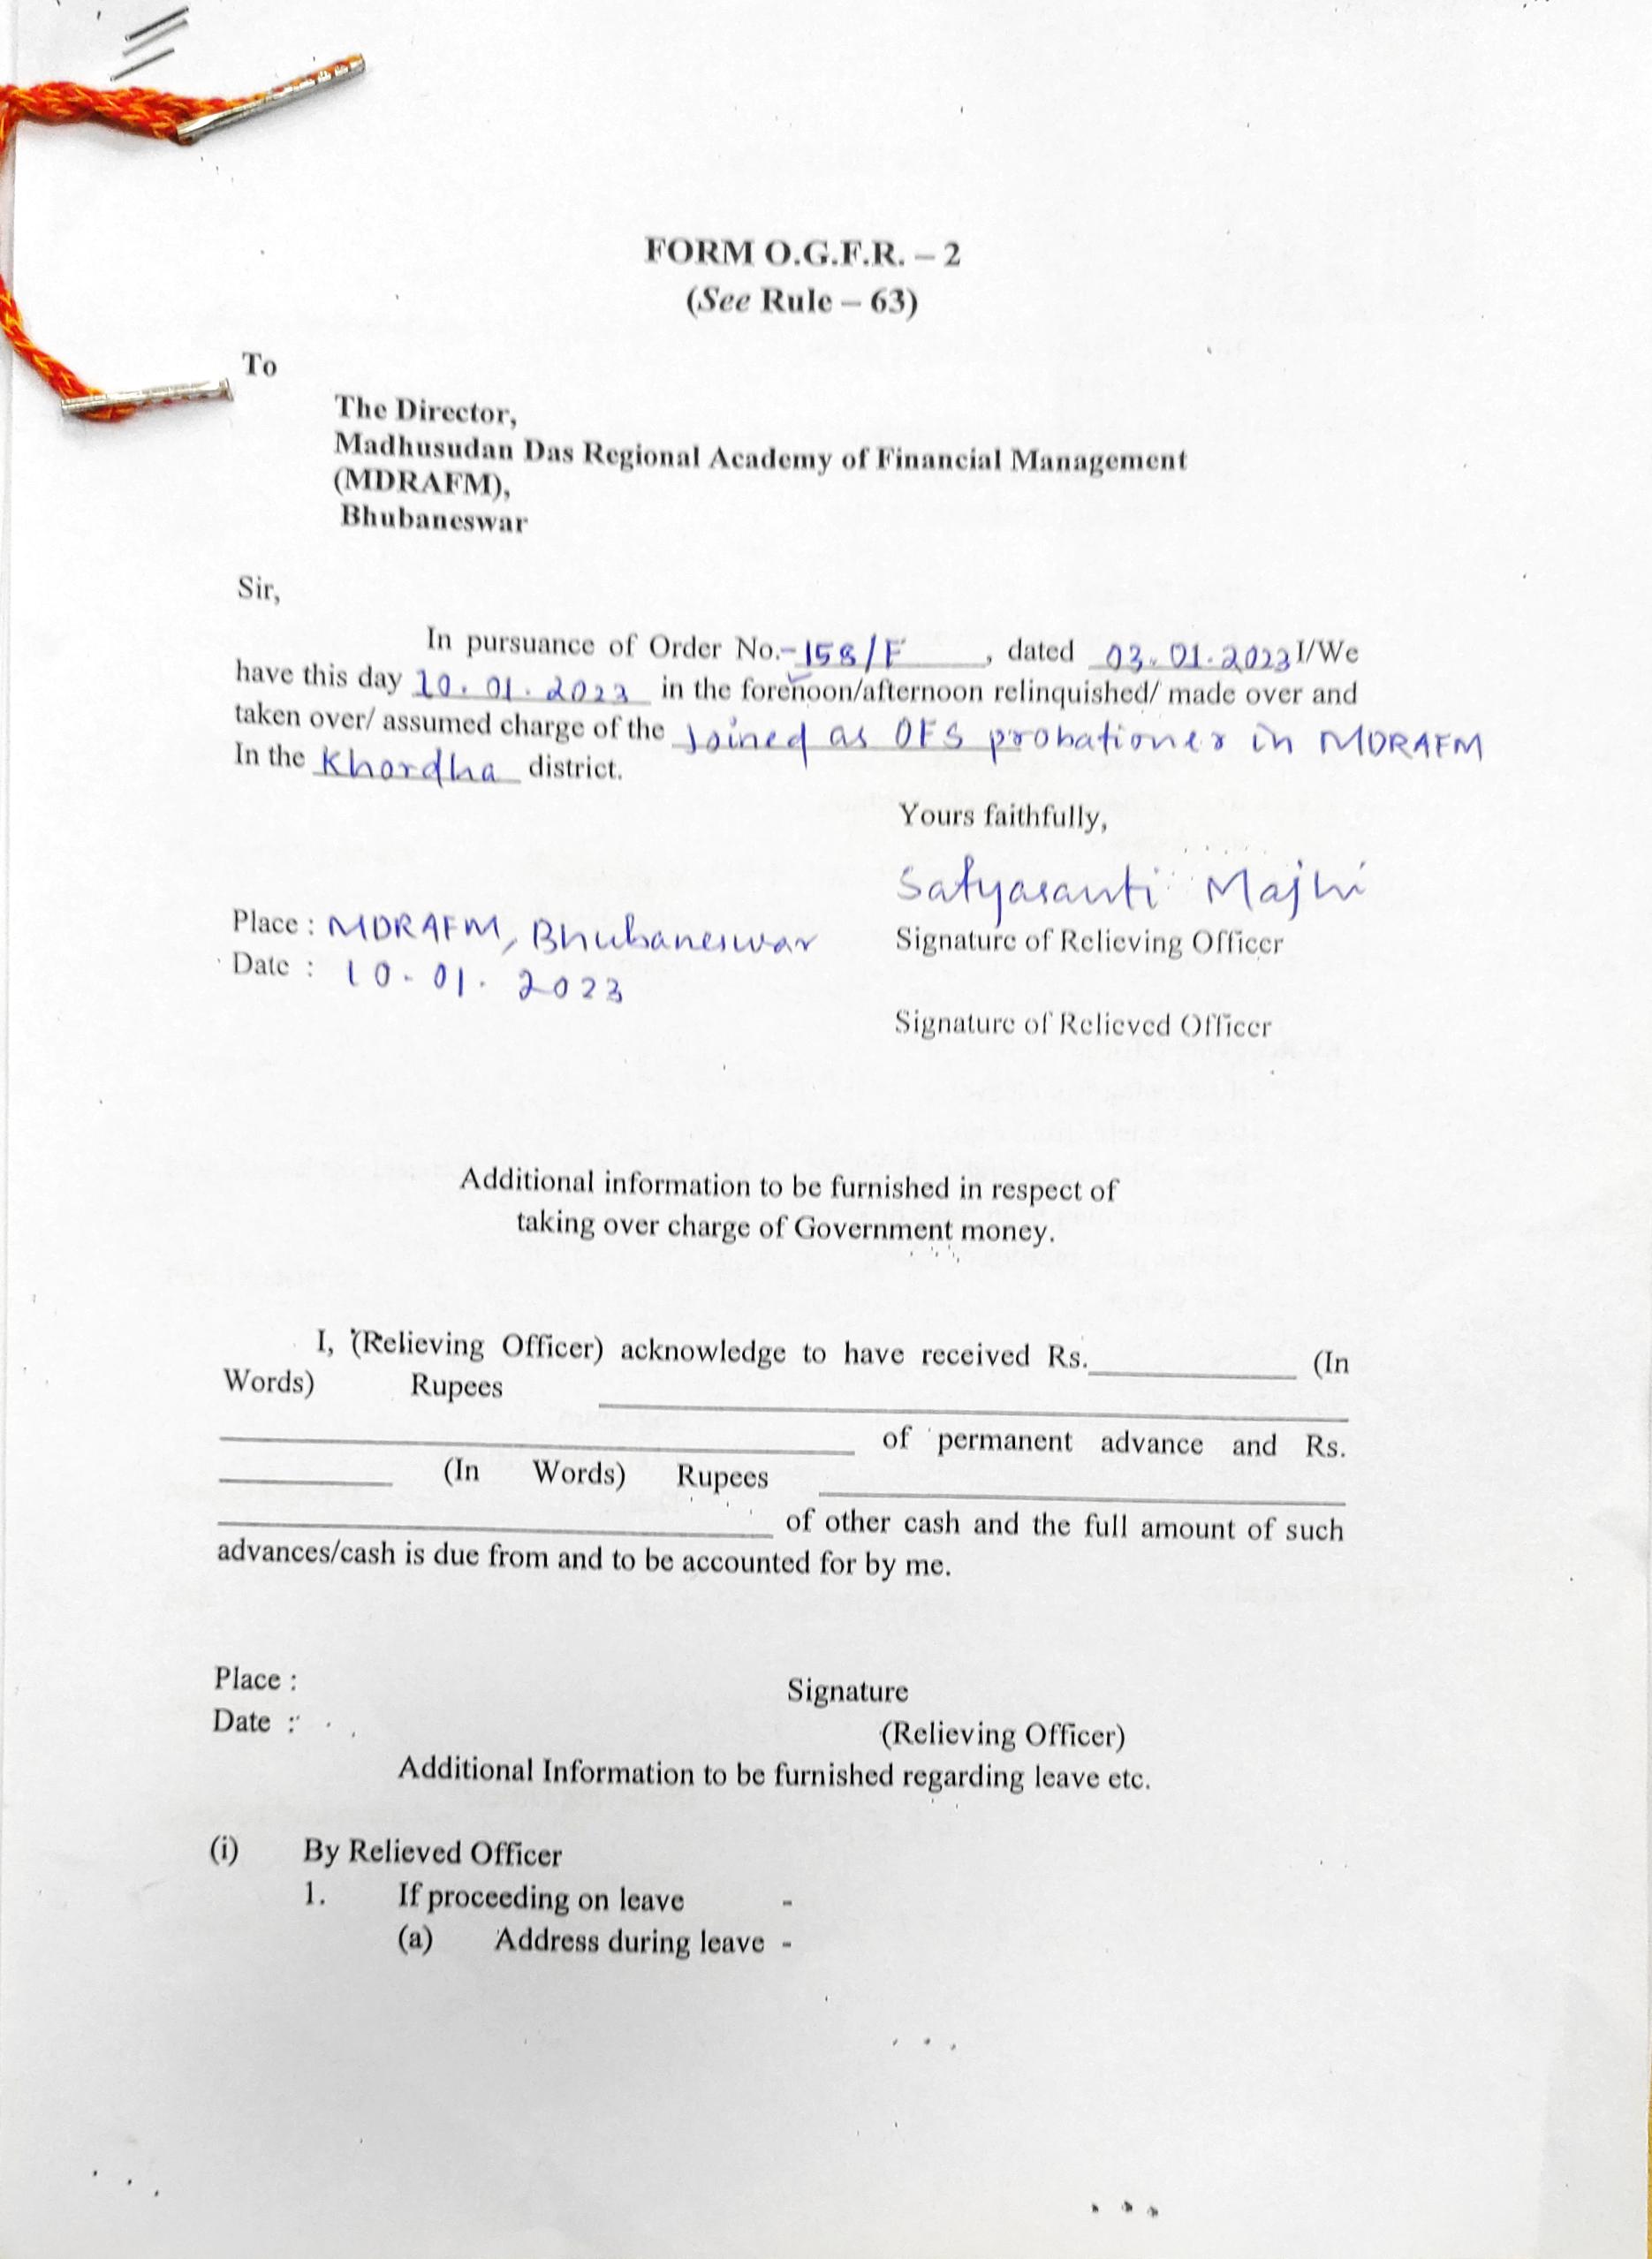 FORM O.G.F.R. – 2
(See Rule – 63)
To
The Director,
Madhusudan Das Regional Academy of Financial Management
(MDRAFM),
Bhubaneswar
Sir,
In pursuance of Order No.- 158/F , dated 03.01.2023 I/We
have this day 10.01.2023 in the forenoon/afternoon relinquished/ made over and
taken over/ assumed charge of the Joined as OFS probationer in MDRAFM
In the Khordha district.
Yours faithfully,
Satyasanti Majhi
Place : MDRAFM, Bhubaneswar
Signature of Relieving Officer
Date : 10.01.2023
Signature of Relieved Officer
Additional information to be furnished in respect of
taking over charge of Government money.
I, (Relieving Officer) acknowledge to have received Rs.____________ (In
Words) Rupees ____________
____________ of permanent advance and Rs.
____________ (In Words) Rupees ____________
____________ of other cash and the full amount of such
advances/cash is due from and to be accounted for by me.
Place :
Signature
Date :
(Relieving Officer)
Additional Information to be furnished regarding leave etc.
(i) By Relieved Officer
1. If proceeding on leave -
(a) Address during leave -